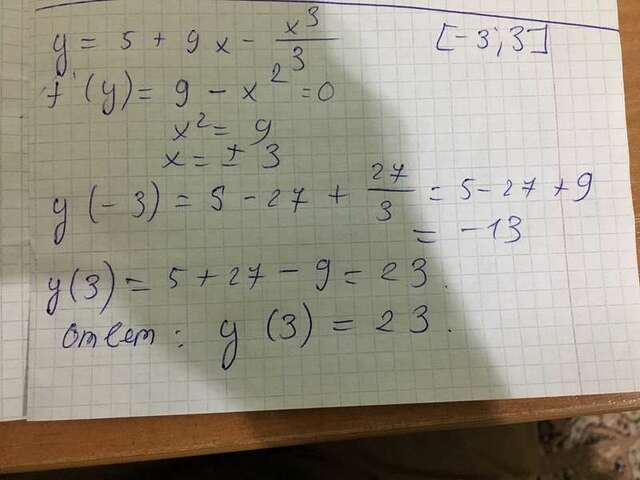 y = 5 + 9x - x³/3 [-3; 3]
f'(y) = 9 - x² = 0
x² = 9
x = ± 3
y(-3) = 5 - 27 + 27/3 = 5 - 27 + 9
= -13
y(3) = 5 + 27 - 9 = 23.
Ответ: y(3) = 23.